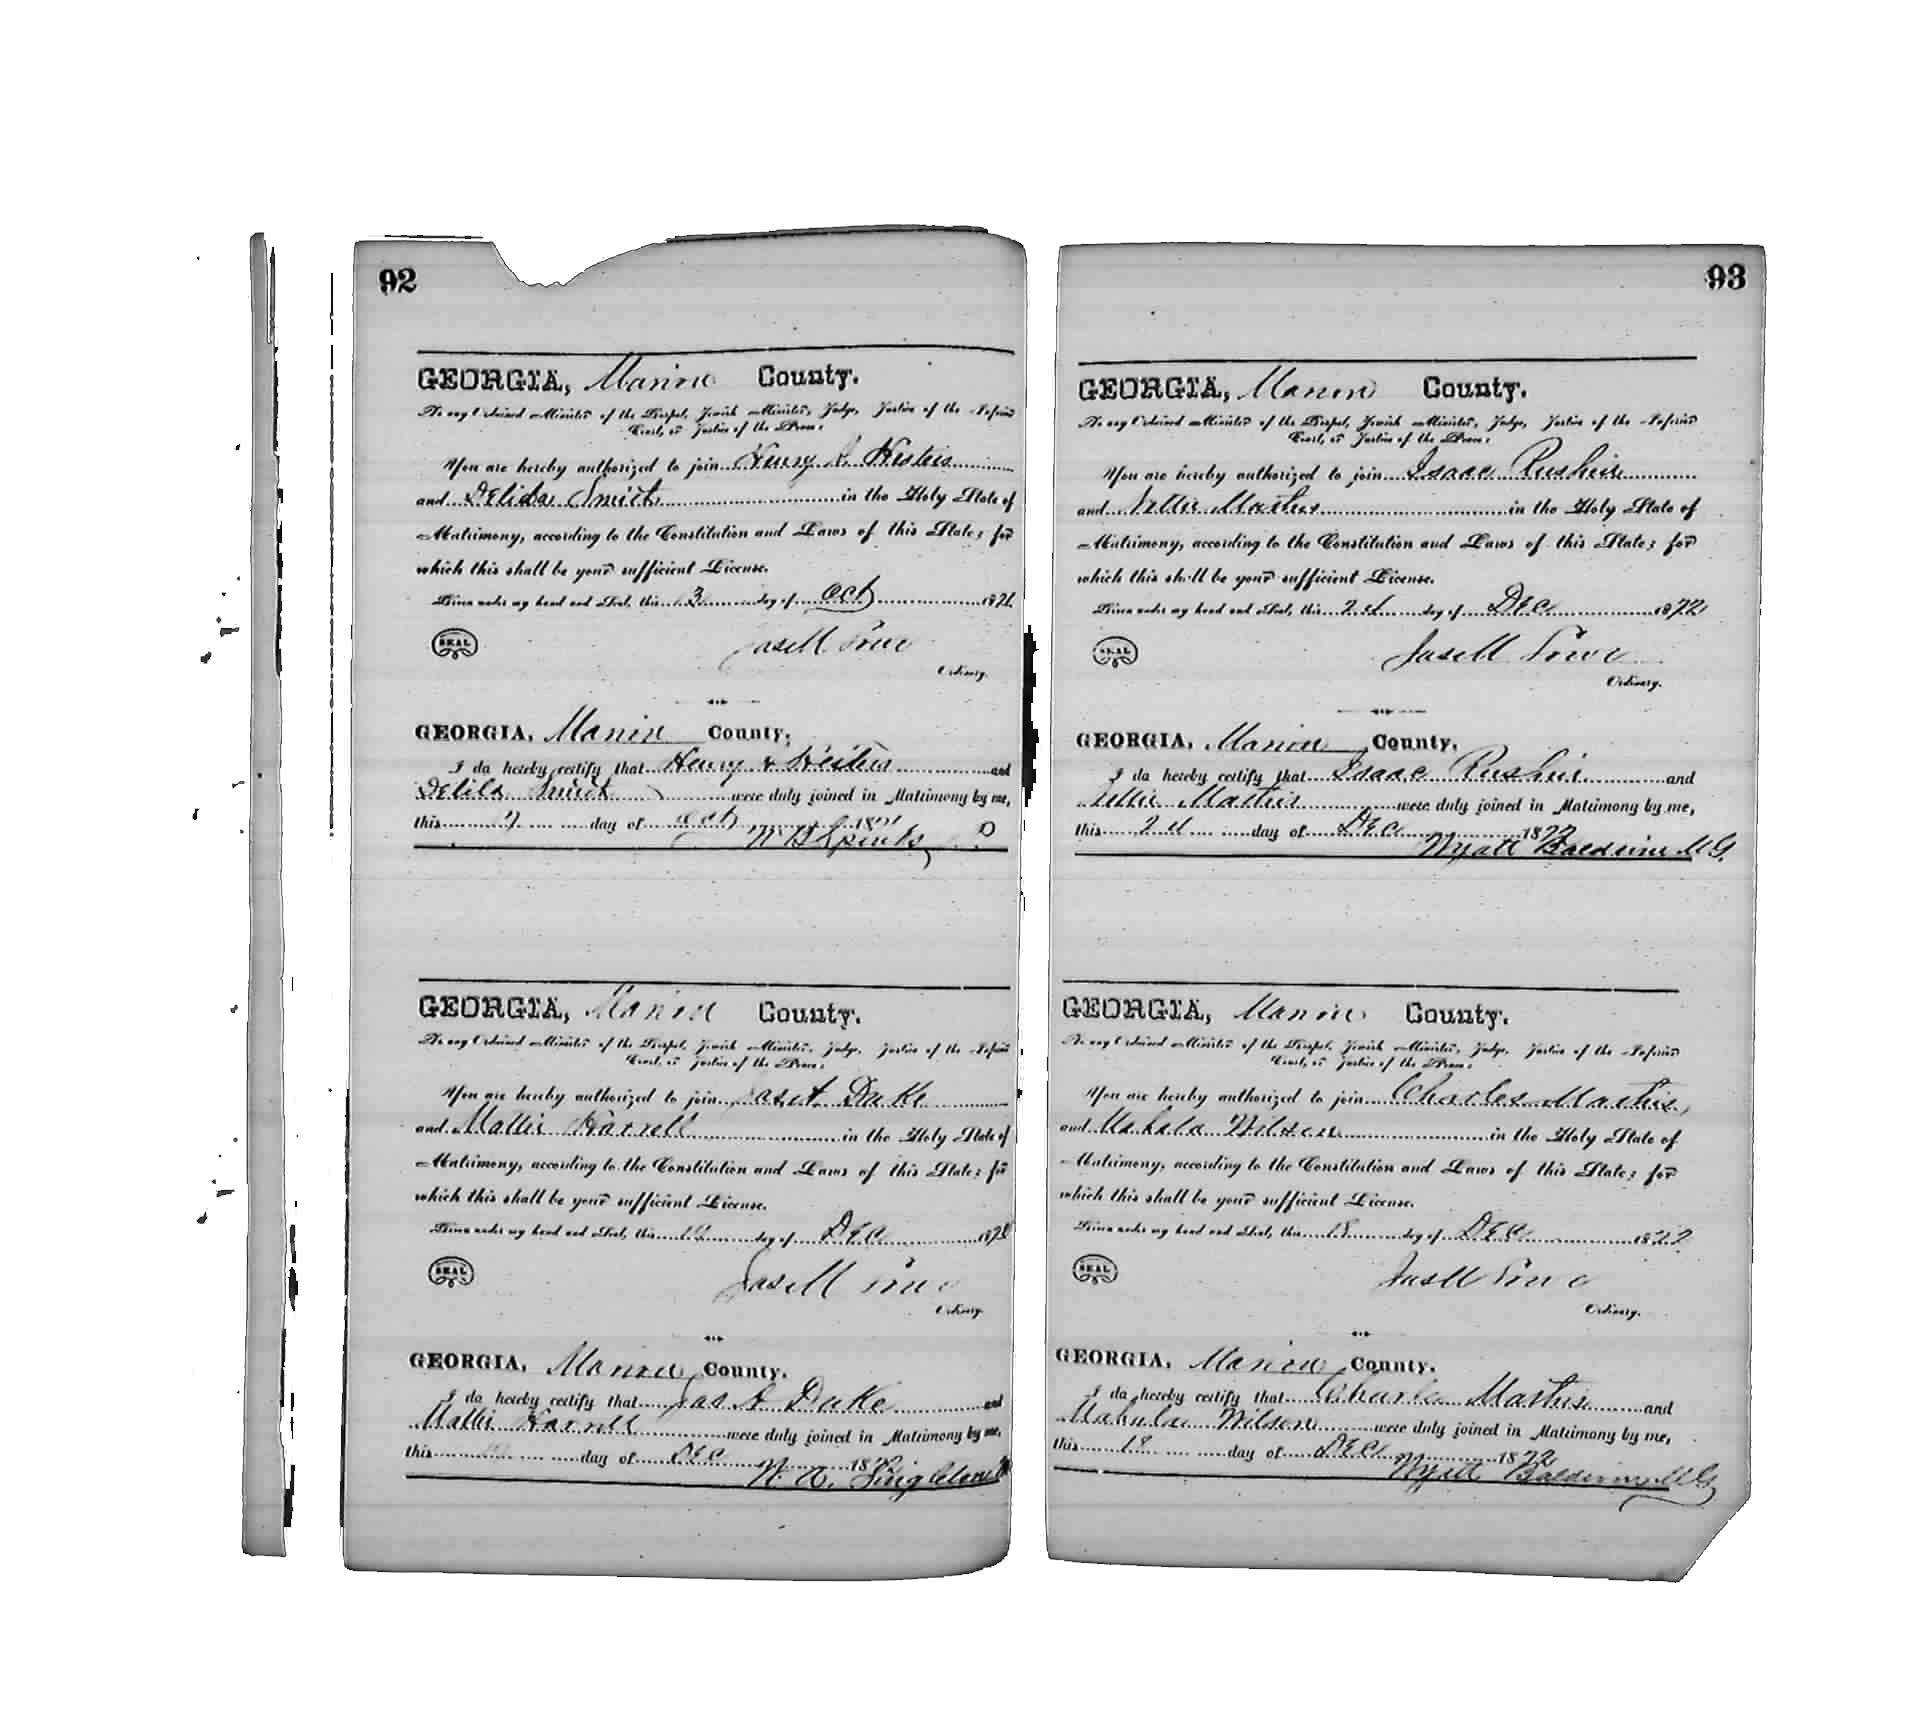 92
GEORGIA, Marion County.
To any Ordained Minister of the Gospel, Jewish Minister, Judge, Justice of the Inferior
Court, or Justice of the Peace:
You are hereby authorized to join Henry
and Delida Smith in the Holy State of
Matrimony, according to the Constitution and Laws of this State; for
which this shall be your sufficient License.
Given under my hand and Seal, this 3 day of Oct 187
SEAL
Jas M Lowe
Ordinary.
GEORGIA, Marion County.
I do hereby certify that Henry and
Smith were duly joined in Matrimony by me,
this day of Oct 187
W B Spinks
GEORGIA, Marion County.
To any Ordained Minister of the Gospel, Jewish Minister, Judge, Justice of the Inferior
Court, or Justice of the Peace:
You are hereby authorized to join Jas A Duke
and Mattie Harrell in the Holy State of
Matrimony, according to the Constitution and Laws of this State; for
which this shall be your sufficient License.
Given under my hand and Seal, this day of Dec 187
SEAL
Jas M Lowe
Ordinary.
GEORGIA, Marion County.
I do hereby certify that Jas A Duke and
Mattie Harrell were duly joined in Matrimony by me,
this day of Dec 187
Singleton
93
GEORGIA, Marion County.
To any Ordained Minister of the Gospel, Jewish Minister, Judge, Justice of the Inferior
Court, or Justice of the Peace:
You are hereby authorized to join Isaac Rushin
and Nettie Mathis in the Holy State of
Matrimony, according to the Constitution and Laws of this State; for
which this shall be your sufficient License.
Given under my hand and Seal, this 2d day of Dec 1872
SEAL
Jas M Lowe
Ordinary.
GEORGIA, Marion County.
I do hereby certify that Isaac Rushin and
Nettie Mathis were duly joined in Matrimony by me,
this 2d day of Dec 1872
Wyatt Baldwin M G.
GEORGIA, Marion County.
To any Ordained Minister of the Gospel, Jewish Minister, Judge, Justice of the Inferior
Court, or Justice of the Peace:
You are hereby authorized to join Charles Mathis,
and Mahala Wilson in the Holy State of
Matrimony, according to the Constitution and Laws of this State; for
which this shall be your sufficient License.
Given under my hand and Seal, this 18 day of Dec 1872
SEAL
Jas M Lowe
Ordinary.
GEORGIA, Marion County.
I do hereby certify that Charles Mathis and
Mahala Wilson were duly joined in Matrimony by me,
this 18 day of Dec 1872
Wyatt Baldwin M G